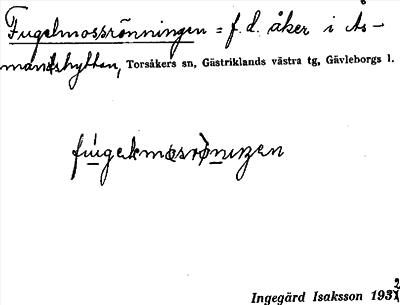 Fugelmossrönningen = f.d. åker i Ås-
mundshyttan, Torsåkers sn, Gästriklands västra tg, Gävleborgs l.
Ingegärd Isaksson 1932